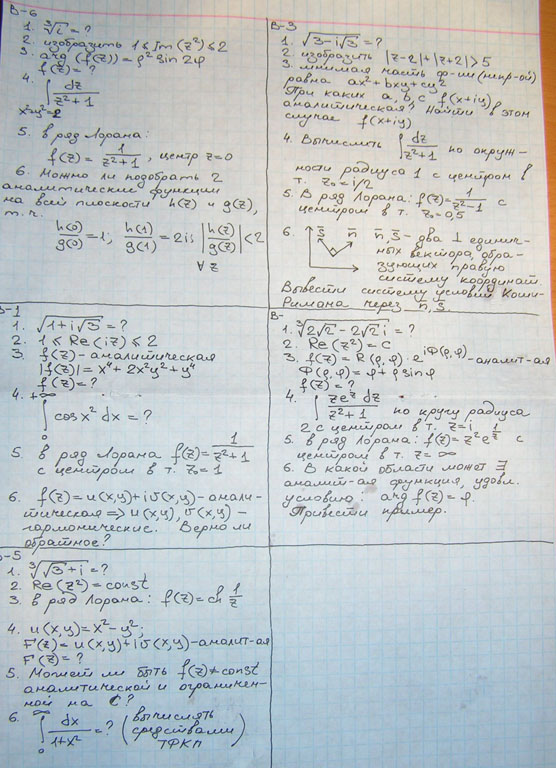 В-6
1. ∛i = ?
2. изобразить 1 ≤ Im(z²) ≤ 2
3. arg(f(z)) = ρ² sin 2φ
f(z) = ?
4. ∫ dz/(z²+1)
x²+y²=2
5. в ряд Лорана:
f(z) = 1/(z²+1), центр z=0
6. Можно ли подобрать 2
аналитические функции
на всей плоскости h(z) и g(z),
т.ч.
h(0)/g(0) = 1; h(1)/g(1) = 2i; |h(z)/g(z)| < 2
∀ z
В-3
1. √(3-i√3) = ?
2. изобразить |z-2|+|z+2|>5
3. мнимая часть ф-ии
равна ax²+bxy+cy²
При каких a, b, c f(x+iy)
аналитическая? Найти в этом
случае f(x+iy)
4. Вычислить ∫ dz/(z²+1) по окруж-
ности радиуса 1 с центром в
т. z₀ = i/2
5. В ряд Лорана: f(z) = 1/(z²-1) с
центром в т. z₀=0,5
6. s n n, s - два ⊥ единич-
ных вектора, обра-
зующих правую
систему координат.
Вывести систему условий Коши-
Римана через n, s.
В-1
1. √(1+i√3) = ?
2. 1 ≤ Re(iz) ≤ 2
3. f(z) - аналитическая
|f(z)| = x⁴ + 2x²y² + y⁴
f(z) = ?
4. +∞
∫ cos x² dx = ?
0
5. в ряд Лорана f(z) = 1/(z²+1)
с центром в т. z₀ = 1
6. f(z) = u(x,y)+iv(x,y) - анали-
тическая => u(x,y), v(x,y) -
гармонические. Верно ли
обратное?
В-
1. ∛(2√2 - 2√2 i) = ?
2. Re(z²) = c
3. f(z) = R(ρ,φ)·e^(iΦ(ρ,φ)) - аналит-ая
Φ(ρ,φ) = φ + ρ sin φ
f(z) = ?
4. ∫ ze^z dz/(z²+1) по кругу радиуса
2 с центром в т. z=i
5. в ряд Лорана: f(z) = z²e^(1/z) с
центром в т. z=∞
6. В какой области может ∃
аналит-ая функция, удовл.
условию: arg f(z) = φ.
Привести пример.
В-5
1. ∛(√3+i) = ?
2. Re(z²) = const
3. в ряд Лорана: f(z) = ch 1/z
4. u(x,y) = x² - y²;
F(z) = u(x,y)+iv(x,y) - аналит-ая
F(z) = ?
5. Может ли быть f(z) ≠ const
аналитической и ограничен-
ной на C?
6. ∞
∫ dx/(1+x²) = ? (вычислять
средствами
0 ТФКП)